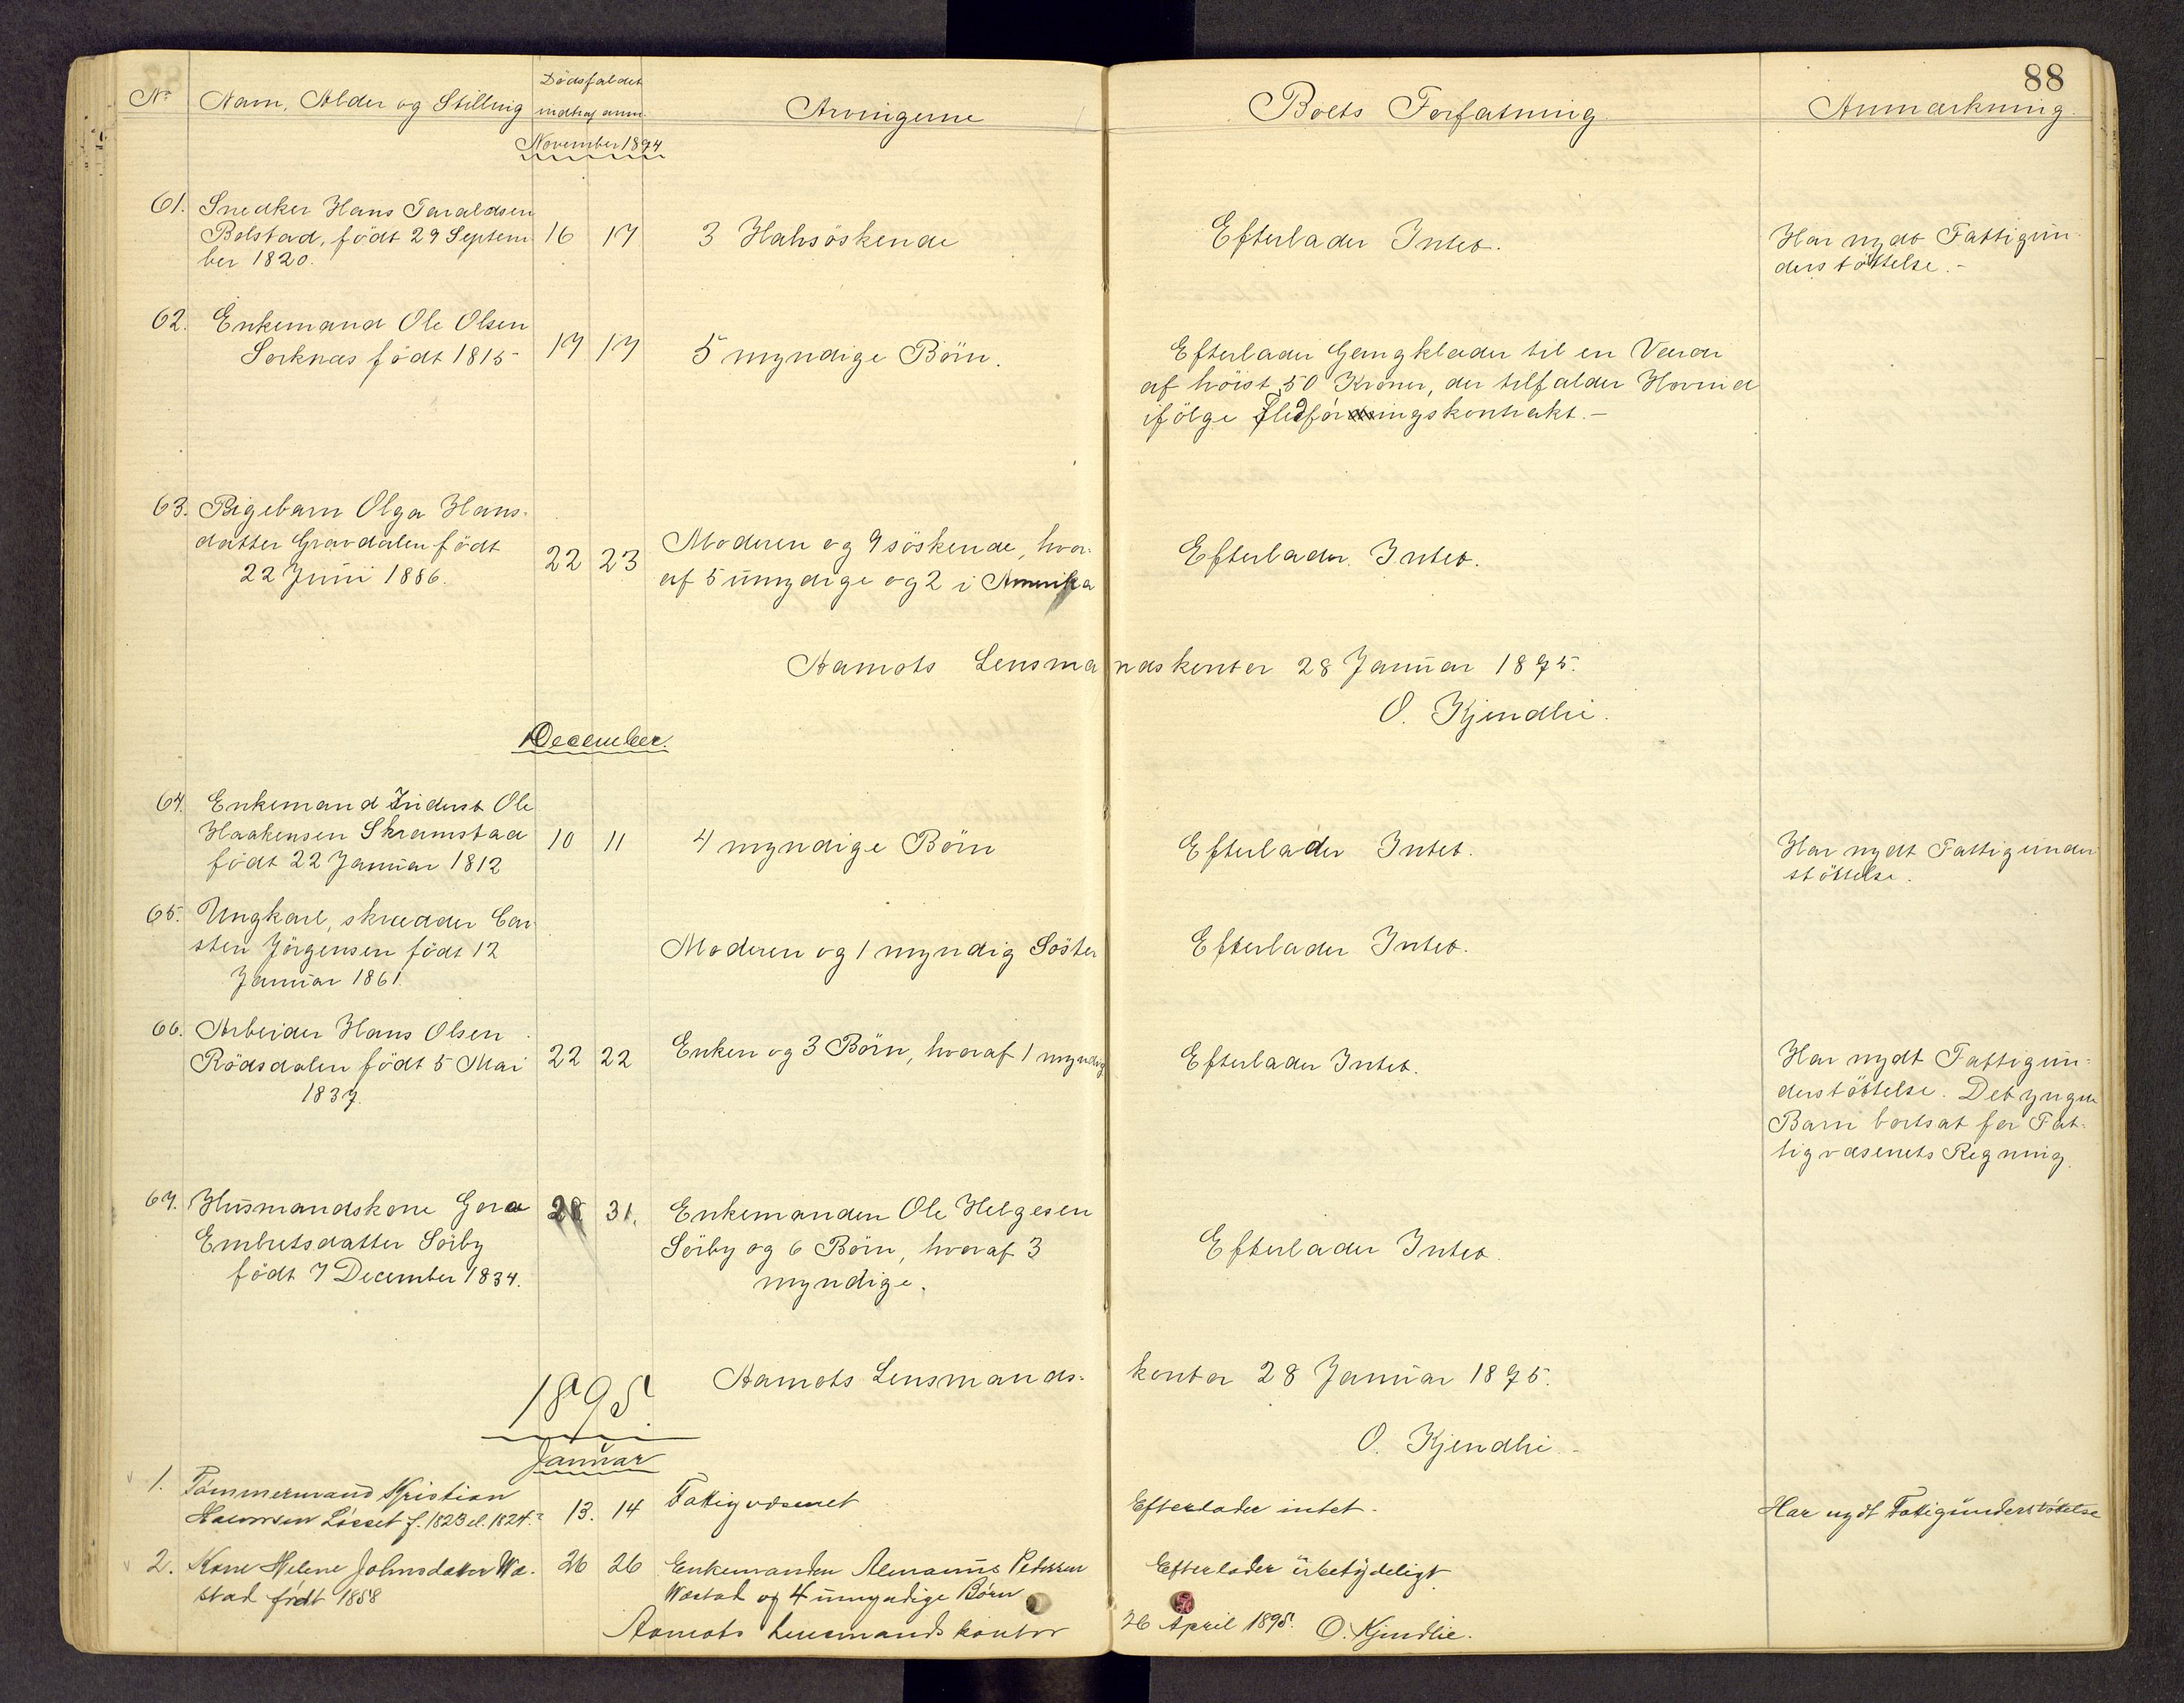 88
No Navn, Alder og Stilling Dødsfaldet Arvingerne Boets Forfatning Anmærkning
indtraf anm.
November 1894
61. Snedker Hans Taraldsen
Bolstad, födt 29 Septem 16 17 3 Halvsöskende Efterlader Intet. Har nydt Fattigun-
ber 1820. derstöttelse.-
62. Enkemand Ole Olsen
Sorknæs födt 1815 17 17 5 myndige Börn. Efterlader Gangklæder til en Værdi
af höist 50 Kroner, der tilfalder Hovind
ifölge Fledföringskontrakt.-
63. Pigebarn Olga Hans-
datter Gravdalen födt 22 23 Moderen og 9 söskende, hvor- Efterlader Intet.
22 Juni 1886. af 5 umydige og 2 i Amerika
Aamots Lensmandskontor 28 Januar 1895.
O. Kjendlie.
December.
64. Enkemand Inderst Ole
Haakensen Skramstad 10 11 4 myndige Börn Efterlader Intet. Har nydt Fattigunder
födt 22 Januar 1812 stöttelse.
65. Ungkarl, skrædder Car-
sten Jörgensen födt 12 Moderen og 1 myndig Söster Efterlader Intet.
Januar 1861.
66. Arbeider Hans Olsen
Rödsdalen födt 5 Mai 22 22 Enken og 3 Börn, hvoraf 1 myndig Efterlader Intet. Har nydt Fattigun-
1837. derstöttelse. Det yngste
Barn bortsat for Fat-
tigvæsenets Regning.
67. Husmandskone Gora 28 31. Enkemanden Ole Helgesen
Embretsdatter Sörby Sörby og 6 Börn, hvoraf 3 Efterlader Intet.
födt 7 December 1834. myndige.
Aamots Lensmands- kontor 28 Januar 1895.
1895.
O. Kjendlie.-
Januar
1. Tømmermand Kristian Fattigvæsenet
Løsset f. 1823 el. 1824.? 13. 14 Efterlader intet. Har nydt Fattigunderstøttelse
2. Kone Helene Johnsdatter Wa- 26 26 Enkemanden Pedersen Efterlader ubetydeligt.
stad født 1858 Wastad og 4 umyndige Børn
Aamots Lensmandskontor 26 April 1895. O. Kjendlie.